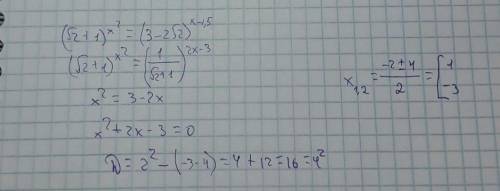 (√2+1)^x² = (3-2√2)^x-1,5
(√2+1)^x² = (1/(√2+1))^2x-3
x² = 3-2x
x²+2x-3=0
D = 2²-(-3·4)=4+12=16=4²
x₁,₂ = (-2±4)/2 = [1
-3